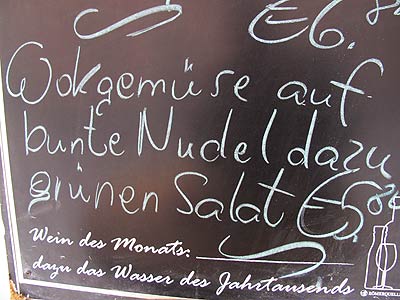 €6.80
Wokgemüse auf
bunte Nudel dazu
grünen Salat €5.80
Wein des Monats:
dazu das Wasser des Jahrtausends
RÖMERQUELLE